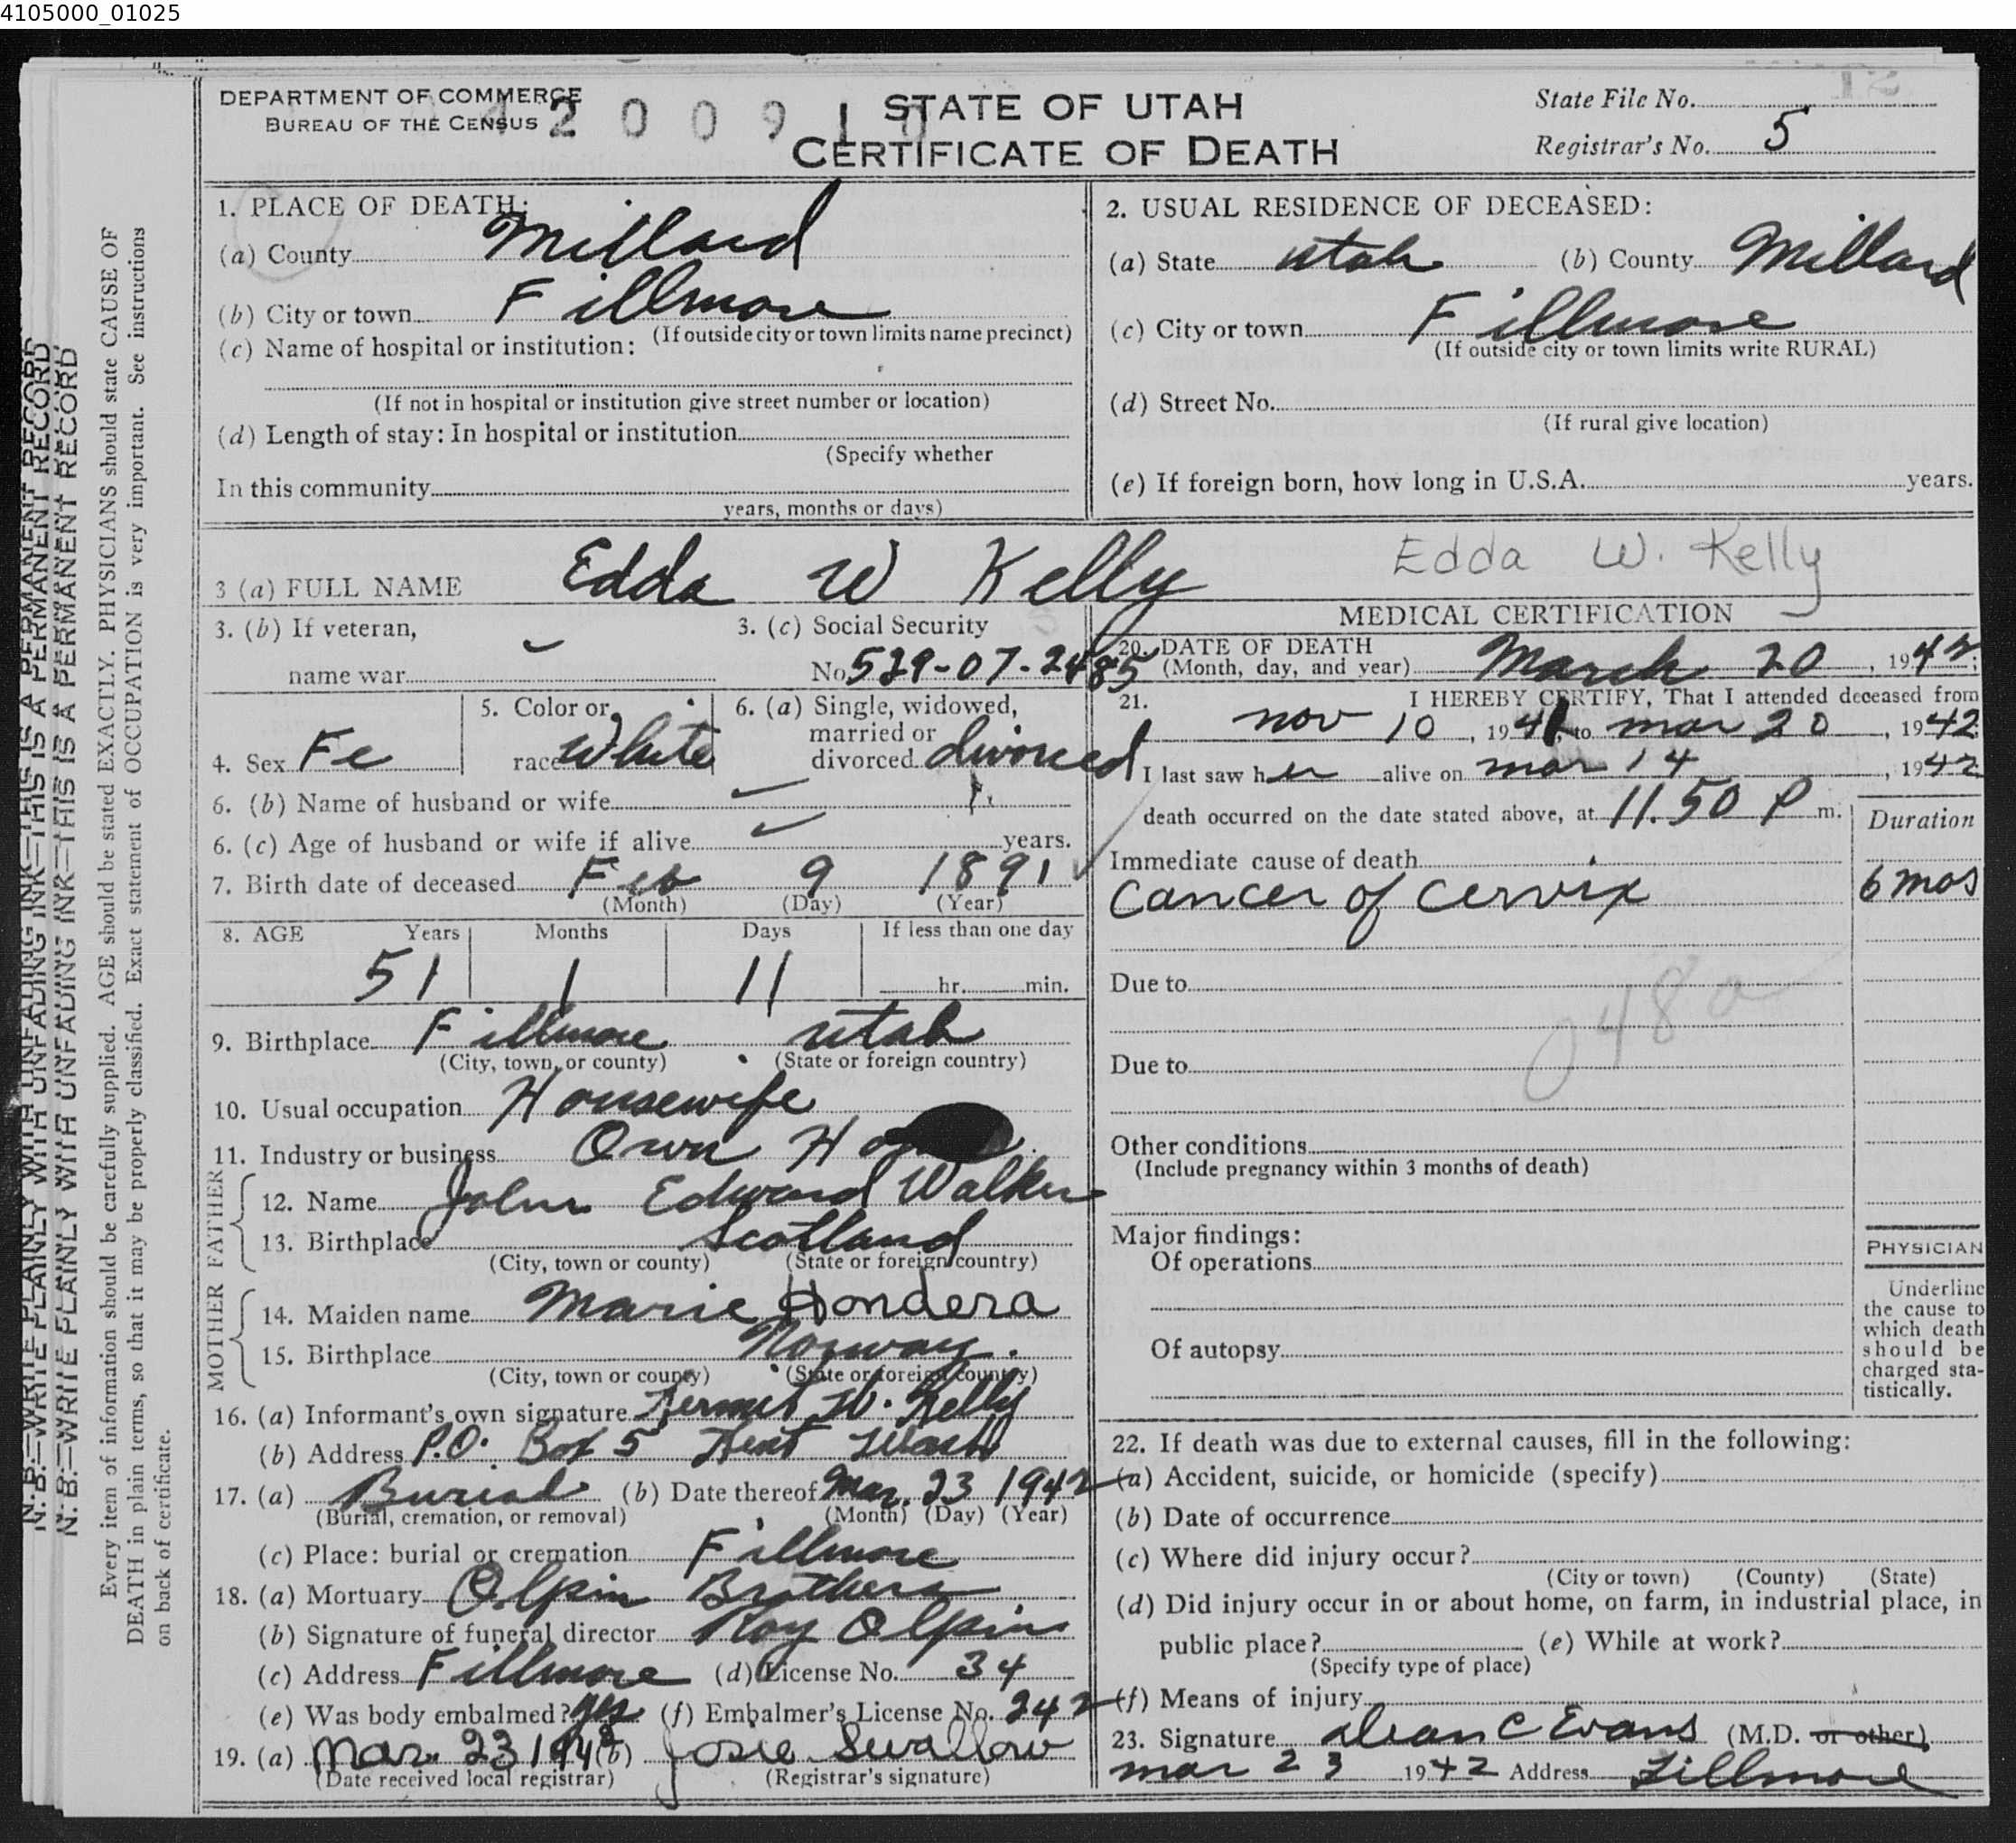 4105000_01025
DEPARTMENT OF COMMERCE
BUREAU OF THE CENSUS
4200910
STATE OF UTAH
CERTIFICATE OF DEATH
State File No.
Registrar's No. 5
12
N. B.—WRITE PLAINLY WITH UNFADING INK—THIS IS A PERMANENT RECORD
N. B.—WRITE PLAINLY WITH UNFADING INK—THIS IS A PERMANENT RECORD
Every item of information should be carefully supplied. AGE should be stated EXACTLY. PHYSICIANS should state CAUSE OF
DEATH in plain terms, so that it may be properly classified. Exact statement of OCCUPATION is very important. See instructions
on back of certificate.
1. PLACE OF DEATH:
(a) County Millard
(b) City or town Fillmore
(If outside city or town limits name precinct)
(c) Name of hospital or institution:
(If not in hospital or institution give street number or location)
(d) Length of stay: In hospital or institution
(Specify whether
In this community
years, months or days)
2. USUAL RESIDENCE OF DECEASED:
(a) State Utah (b) County Millard
(c) City or town Fillmore
(If outside city or town limits write RURAL)
(d) Street No.
(If rural give location)
(e) If foreign born, how long in U.S.A. years.
3 (a) FULL NAME Edda W Kelly
Edda W. Kelly
3. (b) If veteran,
name war
3. (c) Social Security
No. 529-07-2485
4. Sex Fe
5. Color or
race White
6. (a) Single, widowed,
married or
divorced divorced
6. (b) Name of husband or wife
6. (c) Age of husband or wife if alive years.
7. Birth date of deceased Feb 9 1891
(Month) (Day) (Year)
8. AGE Years Months Days If less than one day
51 1 11 hr. min.
9. Birthplace Fillmore Utah
(City, town, or county) (State or foreign country)
10. Usual occupation Housewife
11. Industry or business Own Ho
FATHER
12. Name John Edward Walker
13. Birthplace Scotland
(City, town or county) (State or foreign country)
MOTHER
14. Maiden name Marie Hondera
15. Birthplace Norway.
(City, town or county) (State or foreign country)
16. (a) Informant's own signature Kermit W. Kelly
(b) Address P.O. Box 5 Kent Wash
17. (a) Burial (b) Date thereof Mar. 23 1942
(Burial, cremation, or removal) (Month) (Day) (Year)
(c) Place: burial or cremation Fillmore
18. (a) Mortuary Olpin Brothers
(b) Signature of funeral director Roy Olpin
(c) Address Fillmore (d) License No. 34
(e) Was body embalmed? yes (f) Embalmer's License No. 242
19. (a) Mar. 23 1942 (b) Josie Swallow
(Date received local registrar) (Registrar's signature)
MEDICAL CERTIFICATION
20. DATE OF DEATH
(Month, day, and year) March 20, 1942;
21. I HEREBY CERTIFY, That I attended deceased from
Nov 10, 1941, to Mar 20, 1942
I last saw her alive on Mar 14, 1942
death occurred on the date stated above, at 11.50 P m.
Duration
Immediate cause of death
Cancer of Cervix 6 mos
Due to
48a
Due to
Other conditions
(Include pregnancy within 3 months of death)
Major findings:
Of operations
Of autopsy
PHYSICIAN
Underline
the cause to
which death
should be
charged sta-
tistically.
22. If death was due to external causes, fill in the following:
(a) Accident, suicide, or homicide (specify)
(b) Date of occurrence
(c) Where did injury occur?
(City or town) (County) (State)
(d) Did injury occur in or about home, on farm, in industrial place, in
public place? (e) While at work?
(Specify type of place)
(f) Means of injury
23. Signature Dean C Evans (M.D. or other)
Mar 23 1942 Address Fillmore